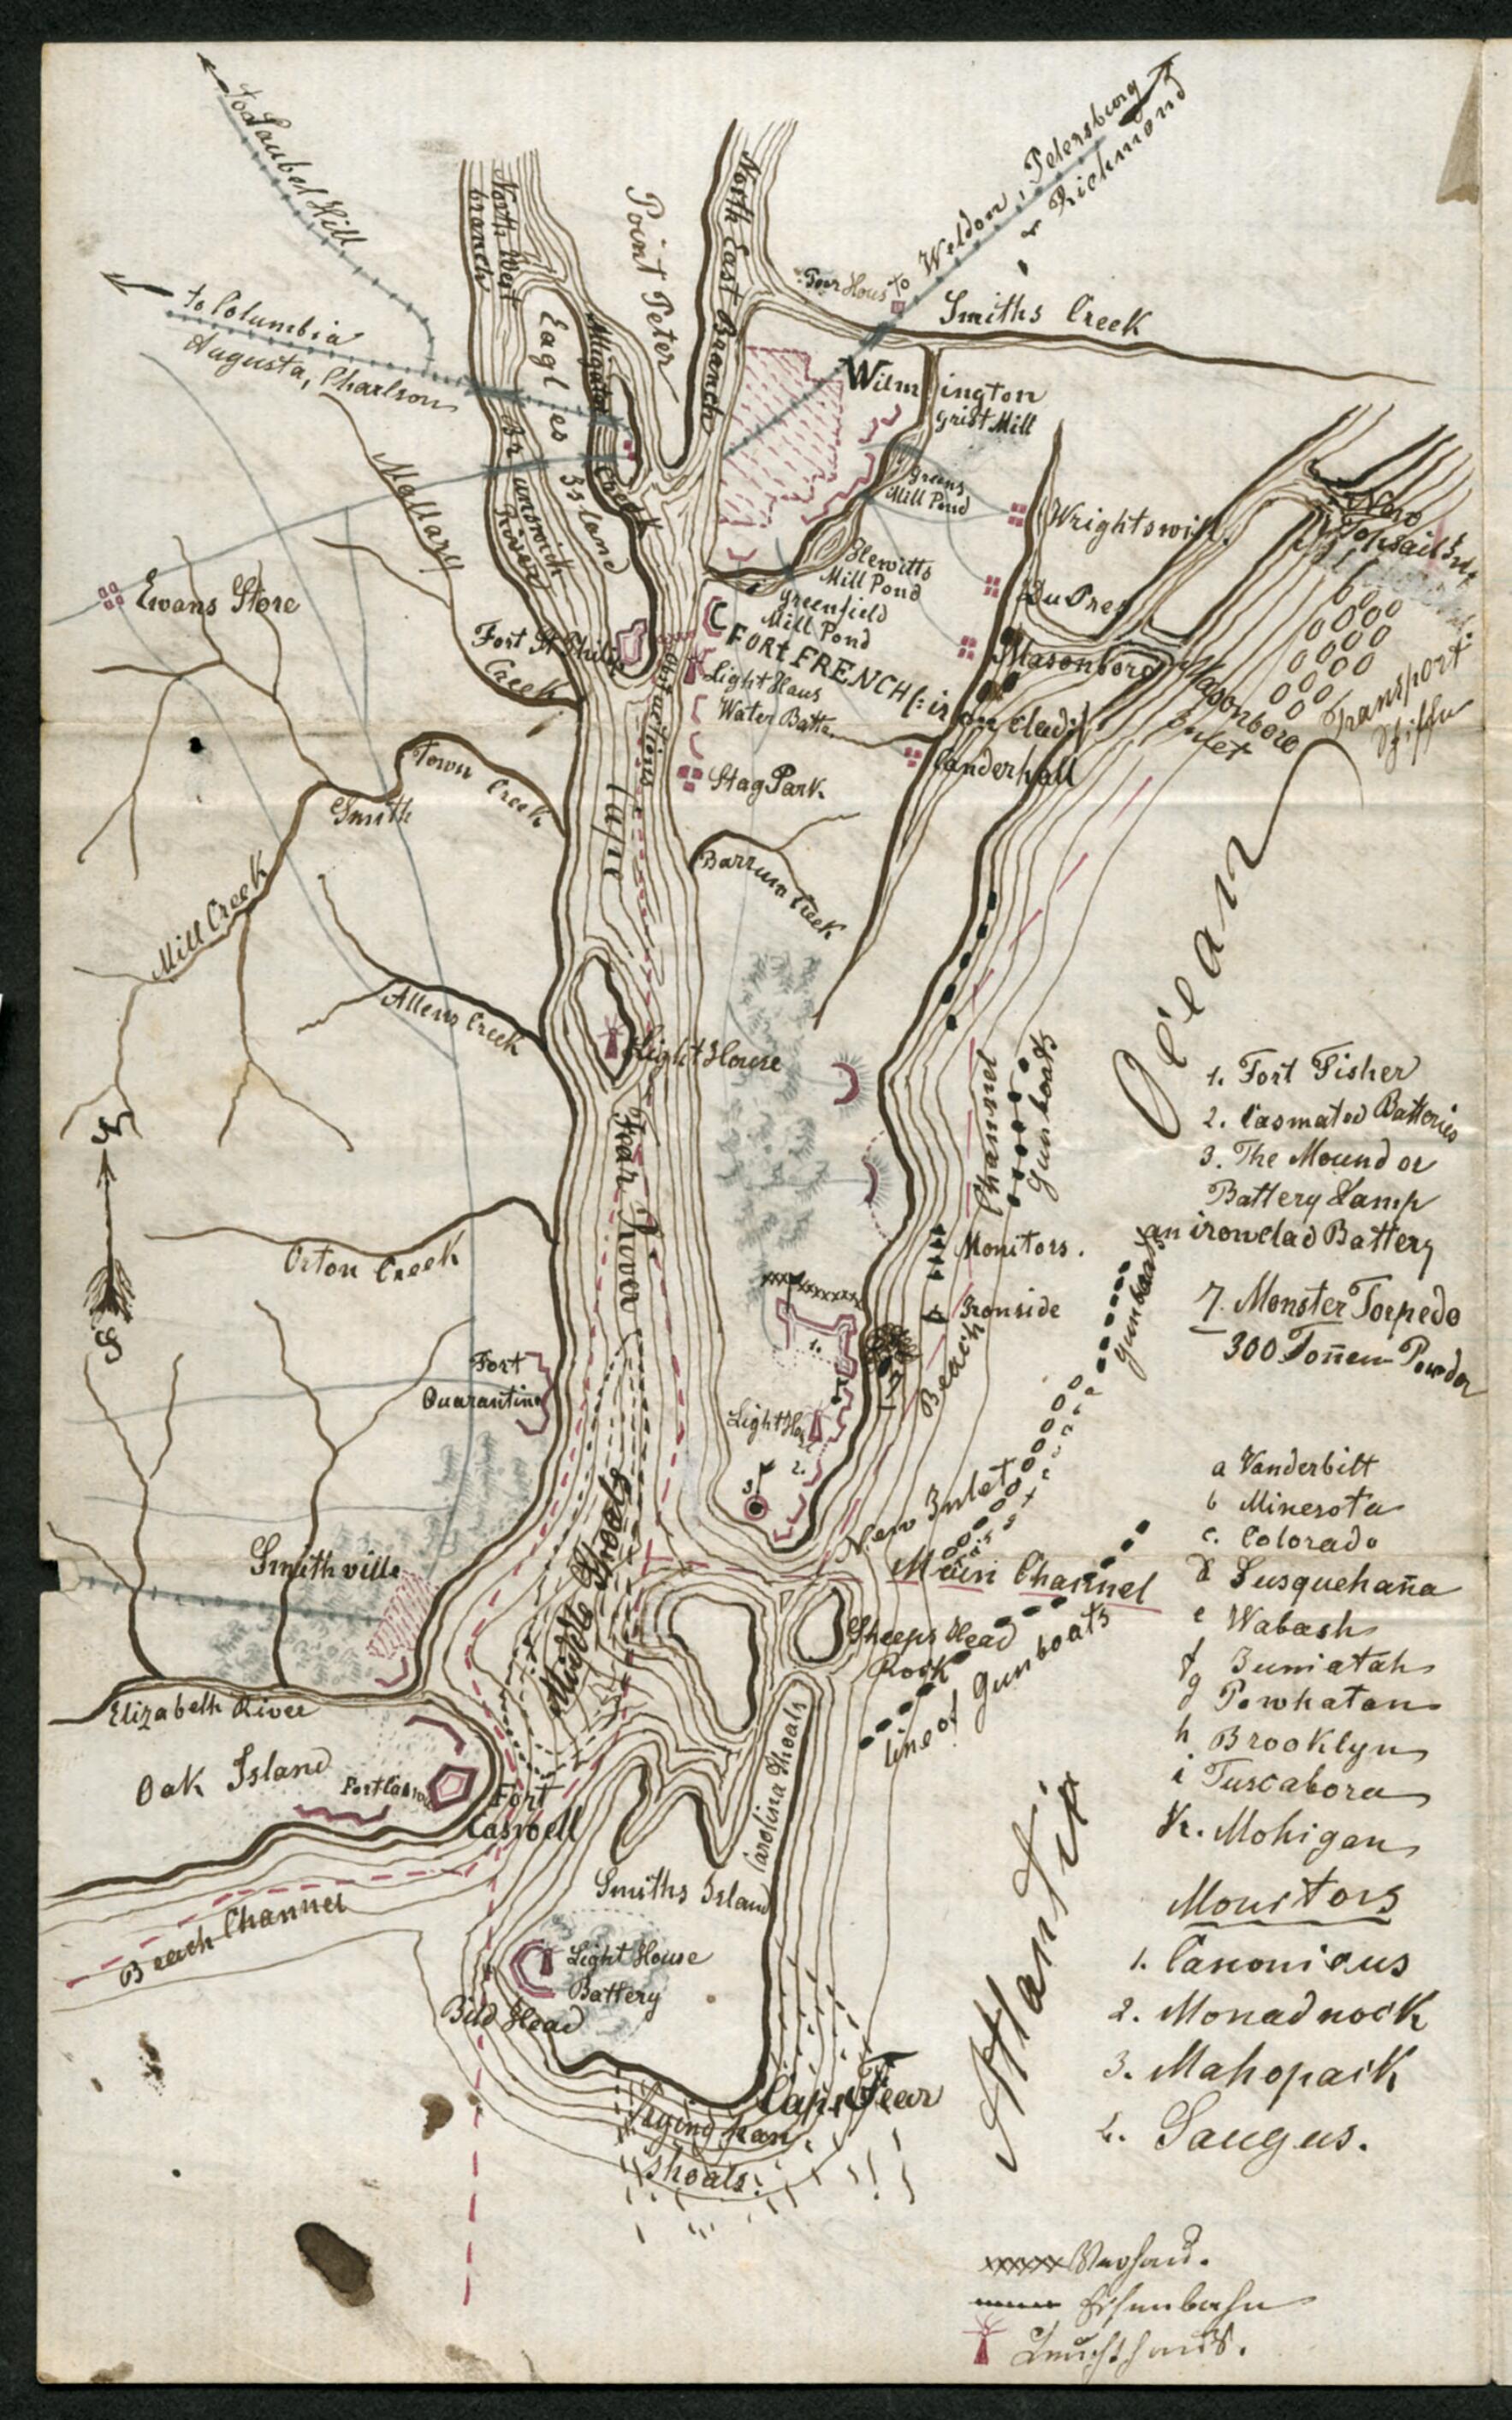 to Laubel Hill
to Columbia
Augusta, Charlson
North West
branch
Point Peter
North East Branch
to Weldon, Petersburg
& Richmond
Poor Hous
Smiths Creek
Eagles Island
Alligator Creek
Brunswich
River
Wilmington
Grist Mill
Greens
Mill Pond
Mallary
Creek
Ewans Store
Wrightswill.
New
Topsail
Hewitts
Mill Pond
Greenfield
Mill Pond
Du Pres
Fort St Philip
FORT FRENCH (: iron clad :)
Masonboro
Masonboro
Inlet
Transport
Schiffe
Obstructions
Light Haus
Water Batta.
Canderhall
Stag Park
Town Creek
Smith
Cape
Fear River
Barrum Creek
Mill Creek
Allens Creek
Light House
Ocean
Channel
Gun boats
1. Fort Fisher
2. Casmated Batteries
3. The Mound or
Battery Lamp
an ironclad Battery
7. Monster Torpedo
300 Toñen Powder
N
S
Orton Creek
Monitors.
Ironside
gunboats
1.
7
Beach
Fort
Quarantine
Light Hou
2.
3.
New Inlet
Main Channel
Middle Shoals
Smithville
Sheeps Head
Rock
line of Gunboats
a Vanderbilt
b Minesota
c. Colorado
d Susquehaña
e Wabash
f Juniatah
g Powhatan
h Brooklyn
i Tuscabora
k. Mohigan
Elizabeth River
Oak Island
Fort Caswell
Fort
Caswell
Carolina Shoals
Smiths Island
Beach Channel
Light House
Battery
Bild Head
Atlantic
Monitors
1. Canonicus
2. Monadnock
3. Mahopack
4. Saugus.
Cape Fear
Frying pan
Shoals.
Verhau.
Eisenbahn
Leuchthaus.